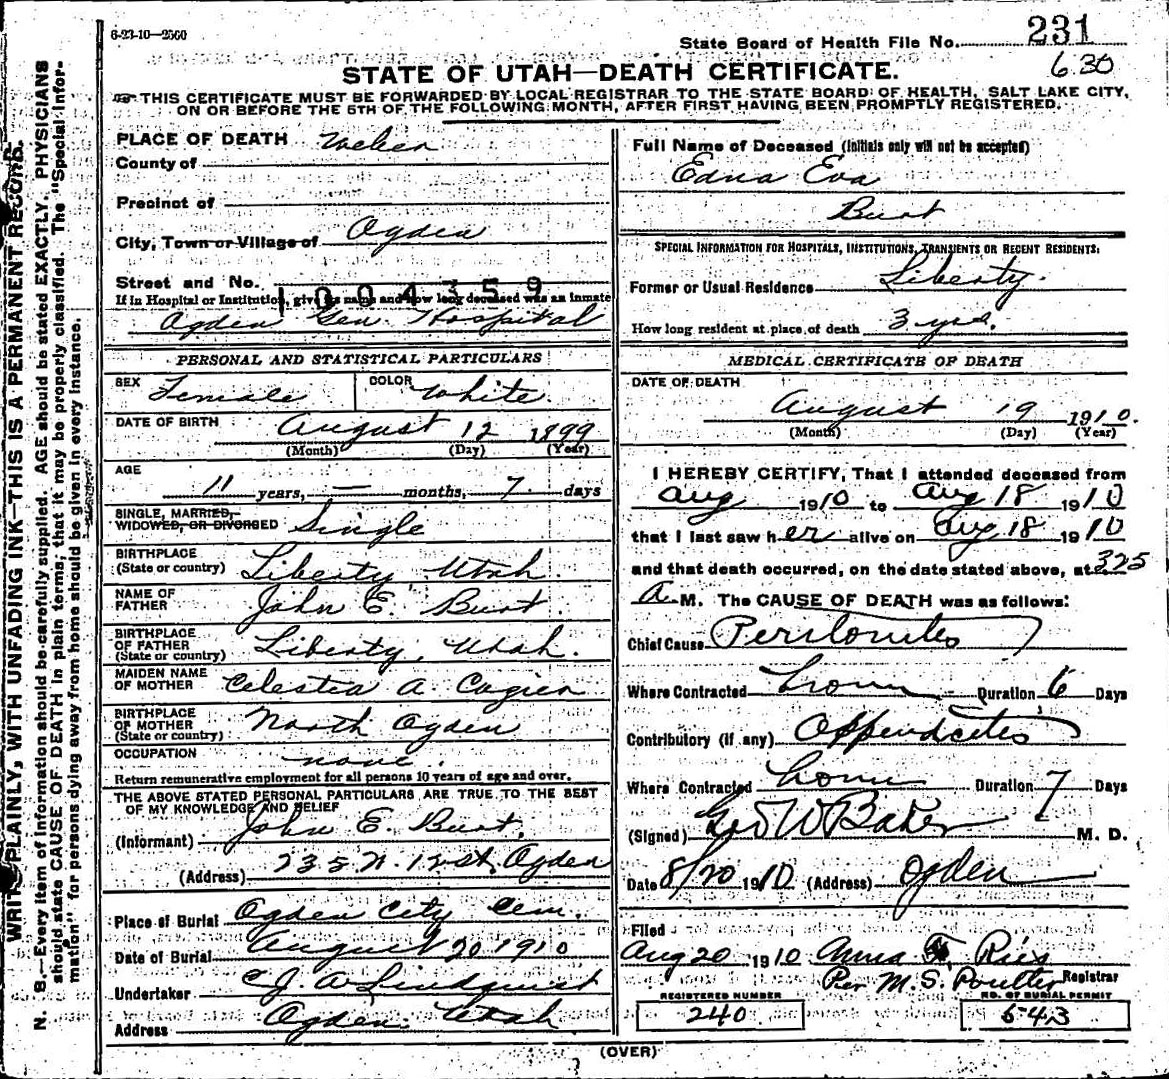 6-23-10—2500
State Board of Health File No. 231
630
STATE OF UTAH—DEATH CERTIFICATE.
THIS CERTIFICATE MUST BE FORWARDED BY LOCAL REGISTRAR TO THE STATE BOARD OF HEALTH, SALT LAKE CITY,
ON OR BEFORE THE 5TH OF THE FOLLOWING MONTH, AFTER FIRST HAVING BEEN PROMPTLY REGISTERED.
WRITE PLAINLY, WITH UNFADING INK—THIS IS A PERMANENT RECORD.
N. B.—Every item of information should be carefully supplied. AGE should be stated EXACTLY. PHYSICIANS
should state CAUSE OF DEATH in plain terms, that it may be properly classified. The "Special Infor-
mation" for persons dying away from home should be given in every instance.
PLACE OF DEATH Weber
County of
Precinct of
City, Town or Village of Ogden
Street and No.
1004359
If in Hospital or Institution, give its name and how long deceased was an inmate
Ogden Gen. Hospital
PERSONAL AND STATISTICAL PARTICULARS
SEX Female COLOR White.
DATE OF BIRTH August 12 1899
(Month) (Day) (Year)
AGE
11 years, — months, 7 days
SINGLE, MARRIED,
WIDOWED, OR DIVORCED Single
BIRTHPLACE
(State or country) Liberty, Utah.
NAME OF
FATHER John E. Burt.
BIRTHPLACE
OF FATHER
(State or country) Liberty, Utah.
MAIDEN NAME
OF MOTHER Celestia A.
BIRTHPLACE
OF MOTHER
(State or country) North Ogden
OCCUPATION none.
Return remunerative employment for all persons 10 years of age and over.
THE ABOVE STATED PERSONAL PARTICULARS ARE TRUE TO THE BEST
OF MY KNOWLEDGE AND BELIEF
(Informant) John E. Burt,
(Address) 235 N. 12 st. Ogden
Place of Burial Ogden City Cem.
Date of Burial August 20 1910
Undertaker C. J. A. Lindquist
Address Ogden, Utah
Full Name of Deceased (Initials only will not be accepted)
Edna Eva
Burt
SPECIAL INFORMATION FOR HOSPITALS, INSTITUTIONS, TRANSIENTS OR RECENT RESIDENTS:
Former or Usual Residence Liberty.
How long resident at place of death 3 yrs.
MEDICAL CERTIFICATE OF DEATH
DATE OF DEATH
August 19 1910.
(Month) (Day) (Year)
I HEREBY CERTIFY, That I attended deceased from
Aug 1910 to Aug 18 1910
that I last saw her alive on Aug 18 1910
and that death occurred, on the date stated above, at 325
A. M. The CAUSE OF DEATH was as follows:
Chief Cause Peritonites
Where Contracted home Duration 6 Days
Contributory (if any) Appendcites
Where Contracted home Duration 7 Days
(Signed) Geo W Baker M. D.
Date 8/20 1910 (Address) Ogden
Filed
Aug 20 1910 Anna F. Ries
Per M. S. Poulter Registrar
REGISTERED NUMBER
240
NO. OF BURIAL PERMIT
643
(OVER)